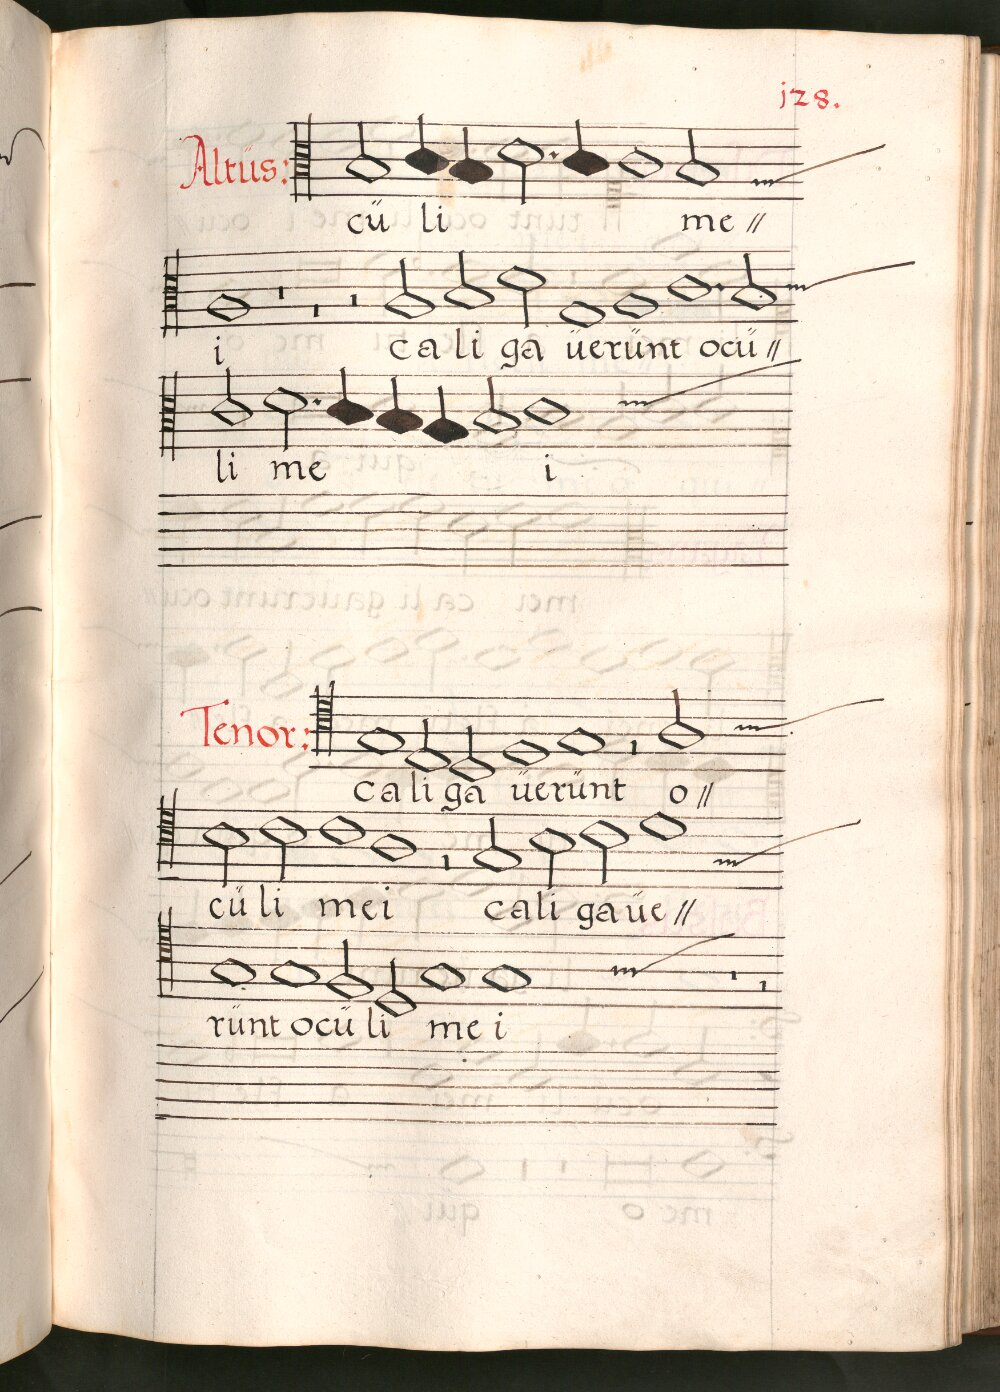 128.
Altüs:
cü li me //
i ca li ga üerünt ocü //
li me i
Tenor:
ca li ga üerünt o //
cü li mei cali gaüe //
rünt ocü li me i